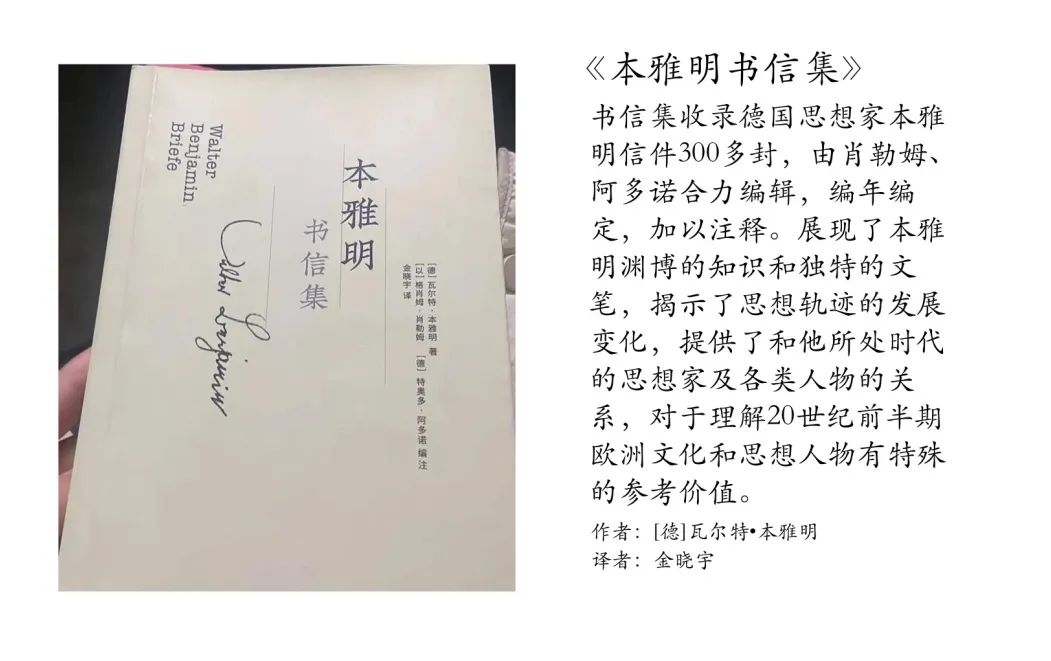 Walter
Benjamin
Briefe
Walter Benjamin
本雅明
书信集
[德] 瓦尔特·本雅明 著
[以] 格肖姆·肖勒姆 [德] 特奥多·阿多诺 编注
金晓宇 译
《本雅明书信集》
书信集收录德国思想家本雅
明信件300多封，由肖勒姆、
阿多诺合力编辑，编年编
定，加以注释。展现了本雅
明渊博的知识和独特的文
笔，揭示了思想轨迹的发展
变化，提供了和他所处时代
的思想家及各类人物的关
系，对于理解20世纪前半期
欧洲文化和思想人物有特殊
的参考价值。
作者：[德]瓦尔特•本雅明
译者：金晓宇